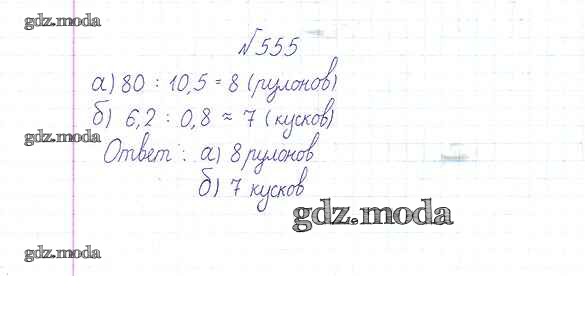 gdz.moda
№555
а) 80 : 10,5 = 8 (рулонов)
б) 6,2 : 0,8 ≈ 7 (кусков)
gdz.moda
Ответ : а) 8 рулонов
б) 7 кусков
gdz.moda
gdz.moda